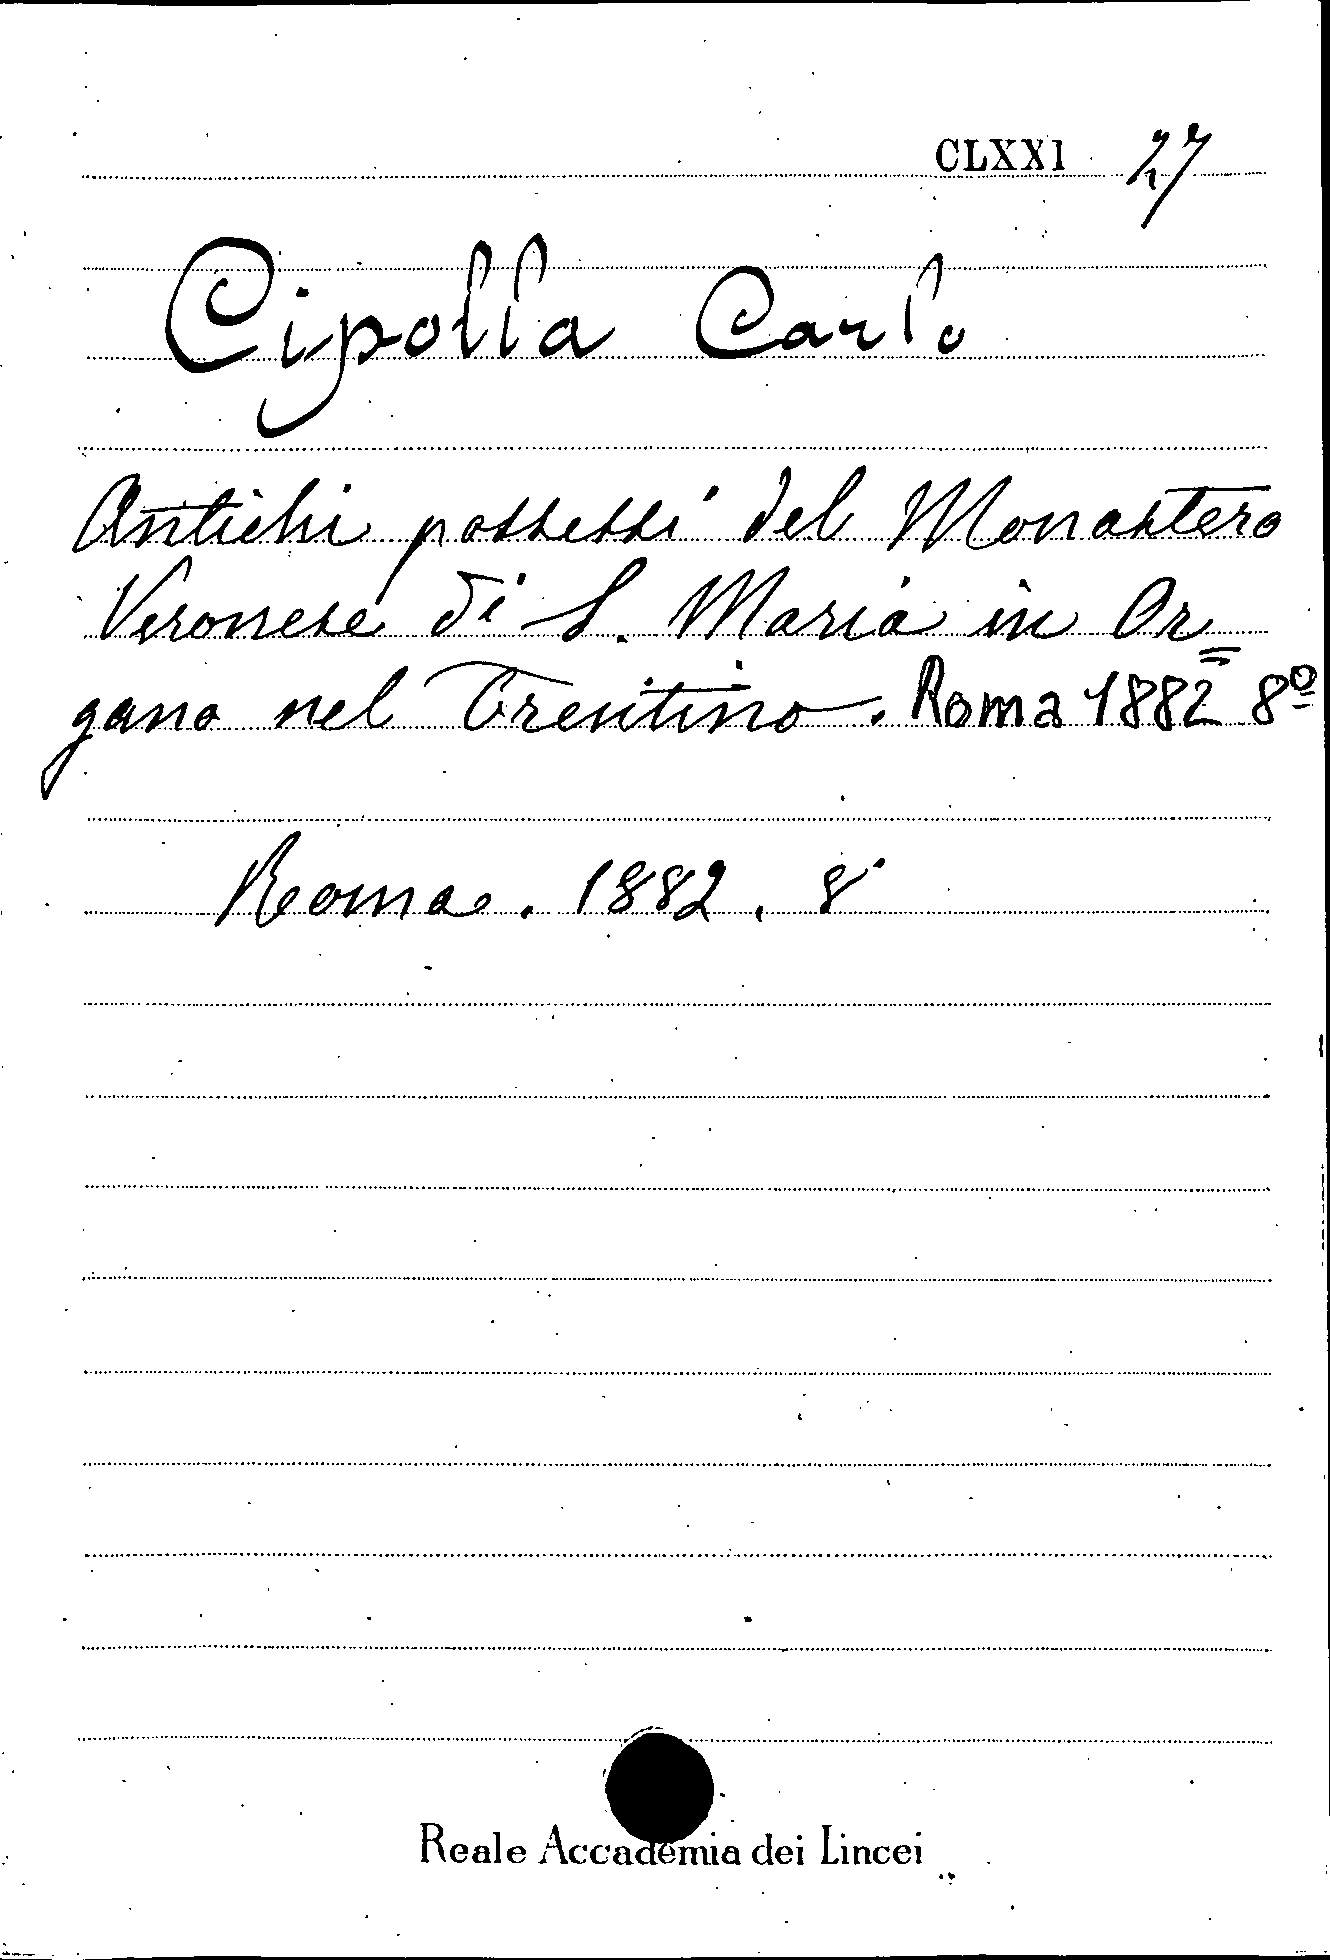 CLXXI 27
Cipolla Carlo
Antichi possessi del Monastero
Veronese di S. Maria in Or=
gano nel Trentino. Roma 1882 8º
Roma. 1882. 8º
Reale Accademia dei Lincei